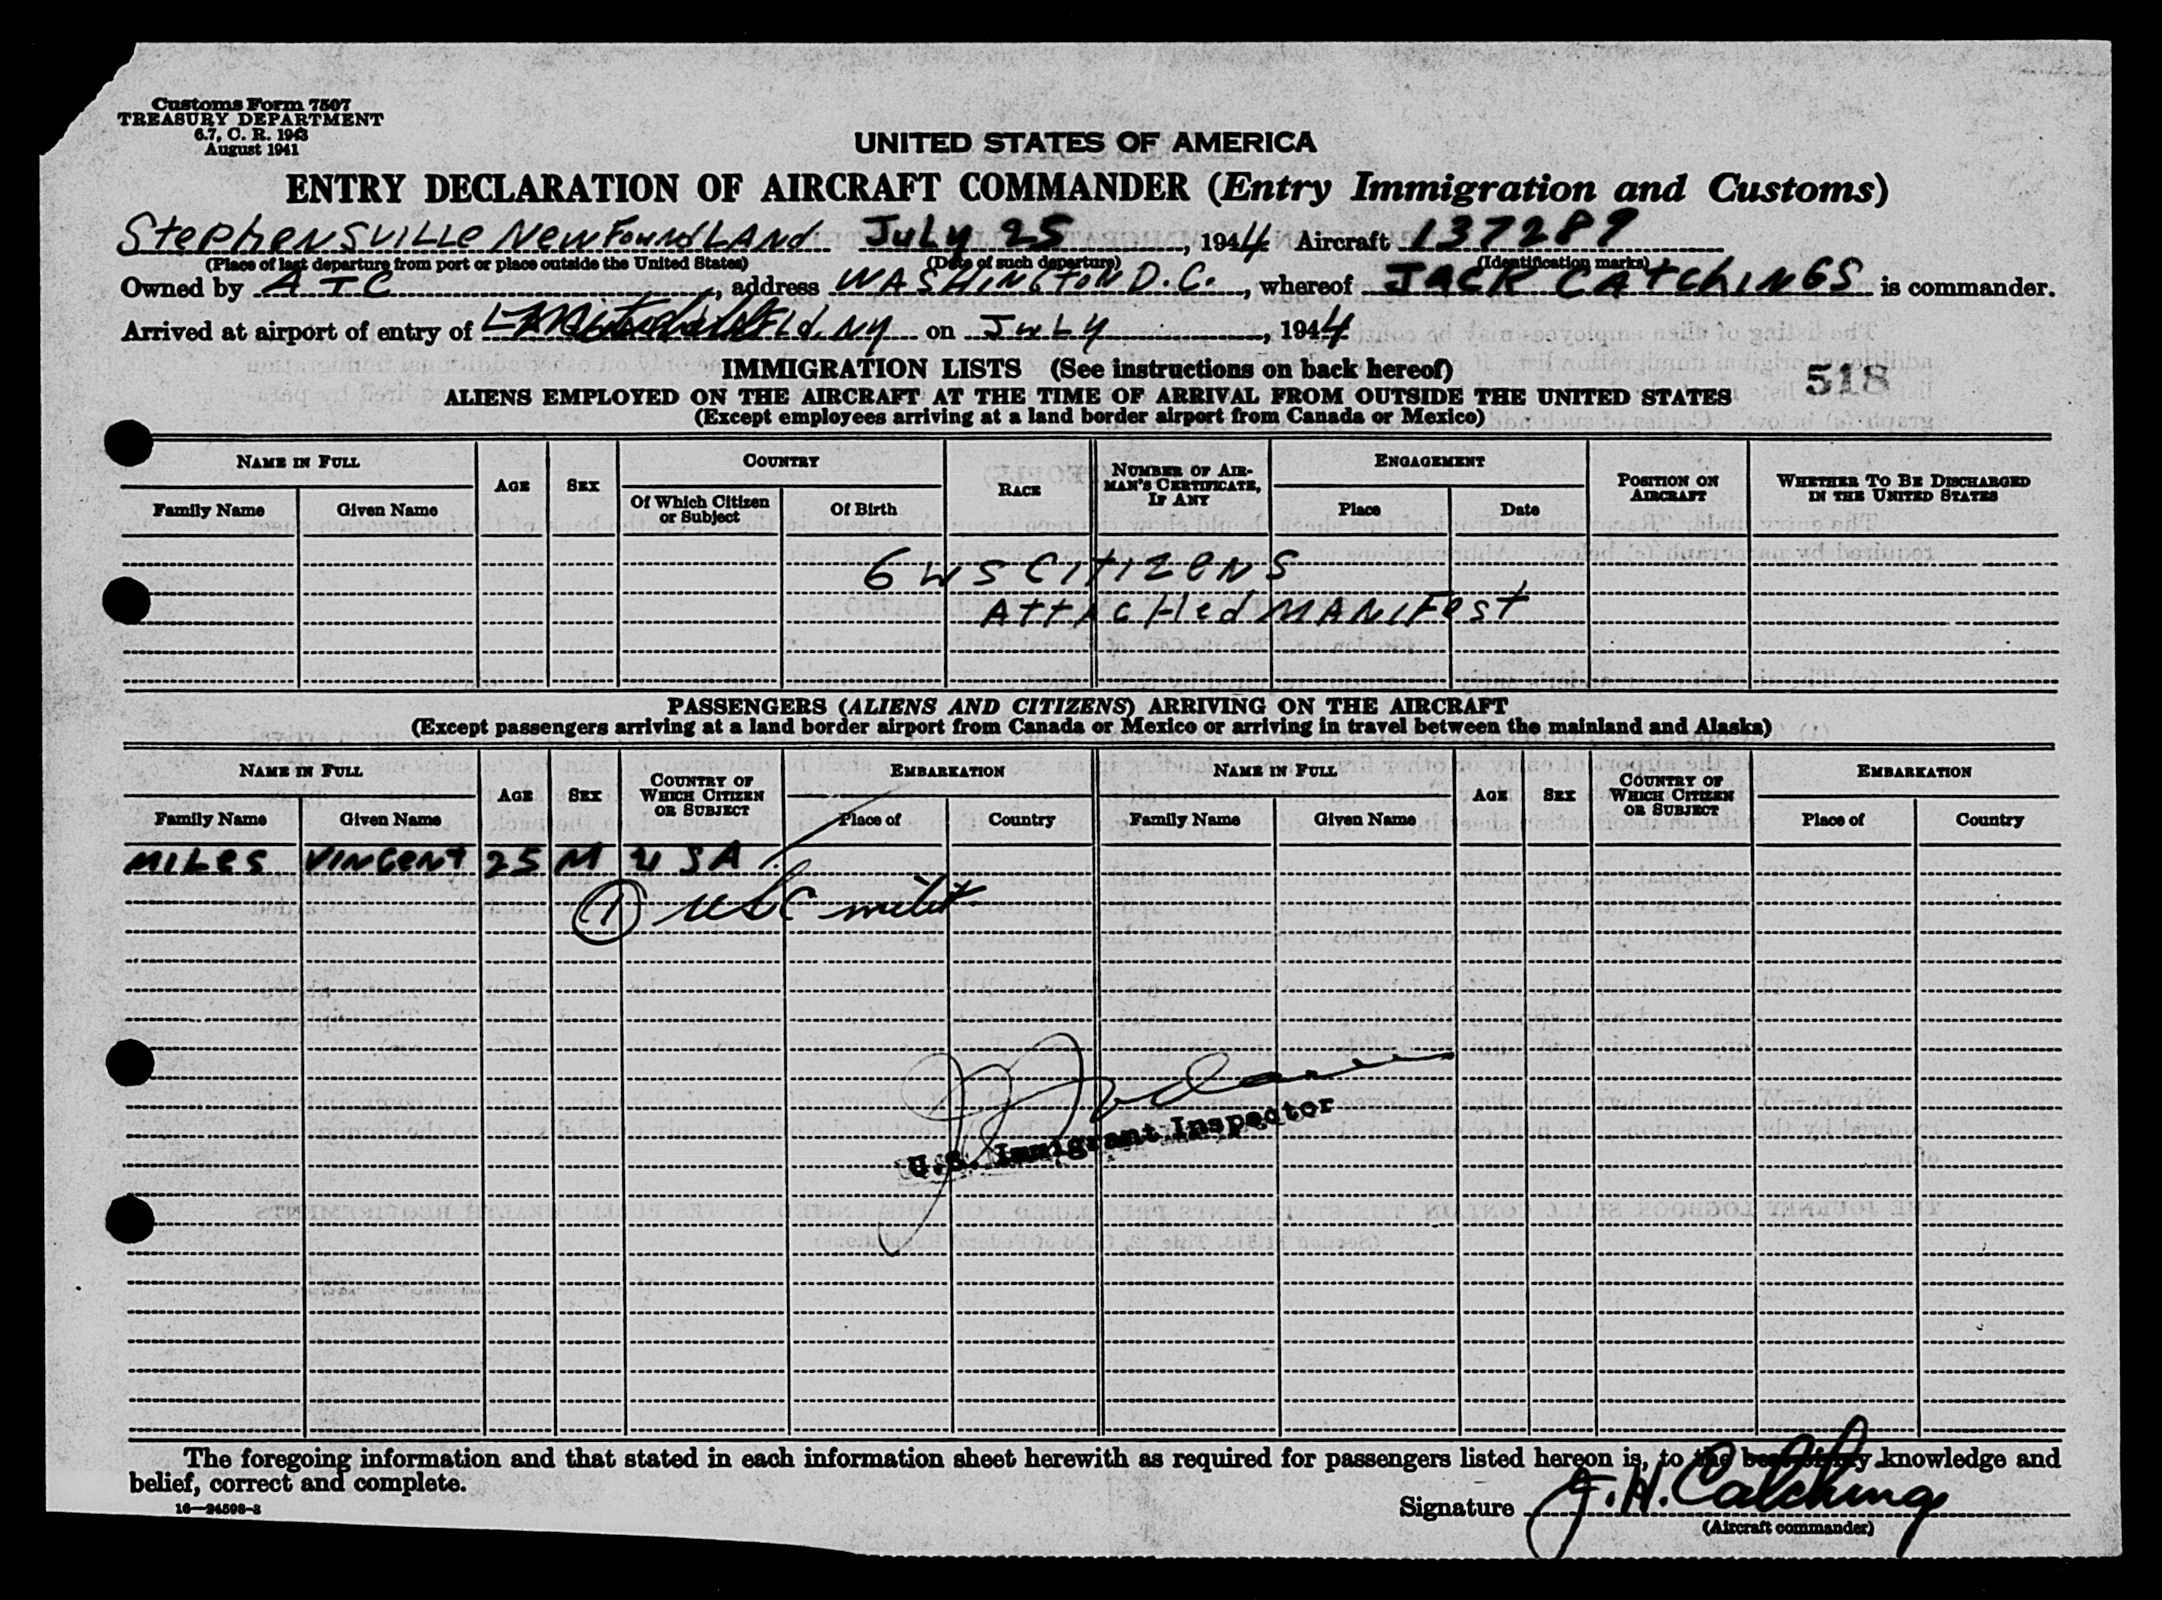 Customs Form 7507
TREASURY DEPARTMENT
6.7, C. R. 1943
August 1941
UNITED STATES OF AMERICA
ENTRY DECLARATION OF AIRCRAFT COMMANDER (Entry Immigration and Customs)
StepheNSVILLe NewFoundLANd July 25, 1944 Aircraft 137289
(Place of last departure from port or place outside the United States) (Date of such departure) (Identification marks)
Owned by ATC, address WASHINGTON D.C., whereof JACK CAtchINGS is commander.
Arrived at airport of entry of Fld. Ny on JuLy, 1944
IMMIGRATION LISTS (See instructions on back hereof)
518
ALIENS EMPLOYED ON THE AIRCRAFT AT THE TIME OF ARRIVAL FROM OUTSIDE THE UNITED STATES
(Except employees arriving at a land border airport from Canada or Mexico)
NAME IN FULL AGE SEX COUNTRY RACE NUMBER OF AIRMAN'S CERTIFICATE, IF ANY ENGAGEMENT POSITION ON AIRCRAFT WHETHER TO BE DISCHARGED IN THE UNITED STATES
Family Name Given Name Of Which Citizen or Subject Of Birth Place Date
6 US CItIZeNS
AttACHed MANIFest
PASSENGERS (ALIENS AND CITIZENS) ARRIVING ON THE AIRCRAFT
(Except passengers arriving at a land border airport from Canada or Mexico or arriving in travel between the mainland and Alaska)
NAME IN FULL AGE SEX COUNTRY OF WHICH CITIZEN OR SUBJECT EMBARKATION NAME IN FULL AGE SEX COUNTRY OF WHICH CITIZEN OR SUBJECT EMBARKATION
Family Name Given Name Place of Country Family Name Given Name Place of Country
MILes VINCeNt 25 M USA
1 USC
U.S. Immigrant Inspector
The foregoing information and that stated in each information sheet herewith as required for passengers listed hereon is, to the best of my knowledge and
belief, correct and complete.
16—24598-2
Signature J. H. Catchings
(Aircraft commander)